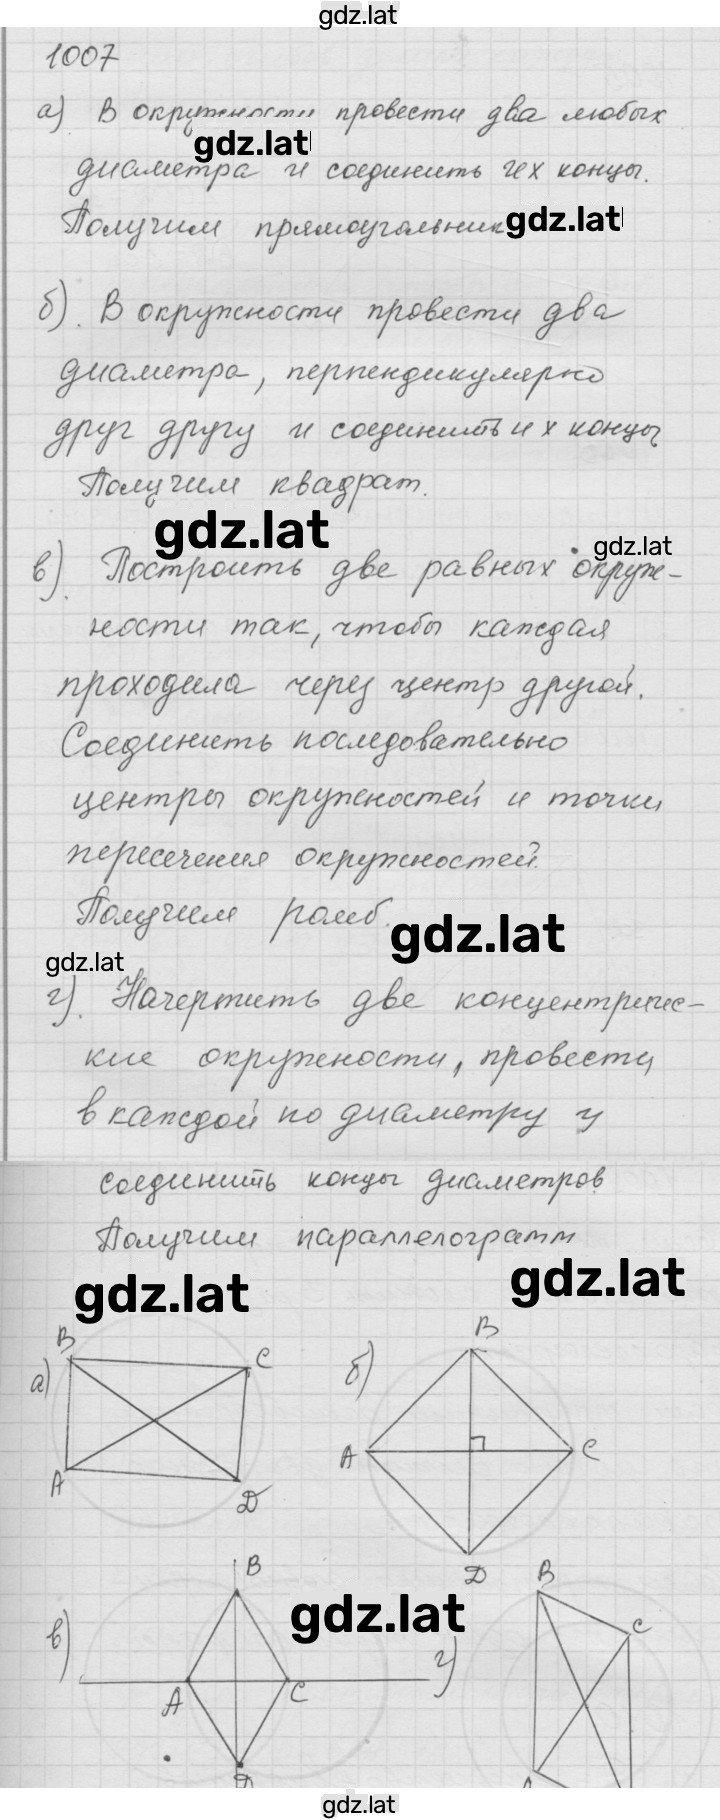 gdz.lat
1007
а) В окружности провести два любых
gdz.lat
диаметра и соединить их концы.
Получим прямоугольник
gdz.lat
б). В окружности провести два
диаметра, перпендикулярно
друг другу и соединить их концы
Получим квадрат.
gdz.lat
gdz.lat
в). Построить две равных окруж-
ности так, чтобы каждая
проходила через центр другой.
Соединить последовательно
центры окружностей и точки
пересечения окружностей.
Получим ромб.
gdz.lat
gdz.lat
г). Начертить две концентричес-
кие окружности, провести
в каждой по диаметру и
соединить концы диаметров
Получим параллелограмм
gdz.lat
gdz.lat
а) B C A D
б) B A C D
gdz.lat
в) B A C D
г) B C A
gdz.lat